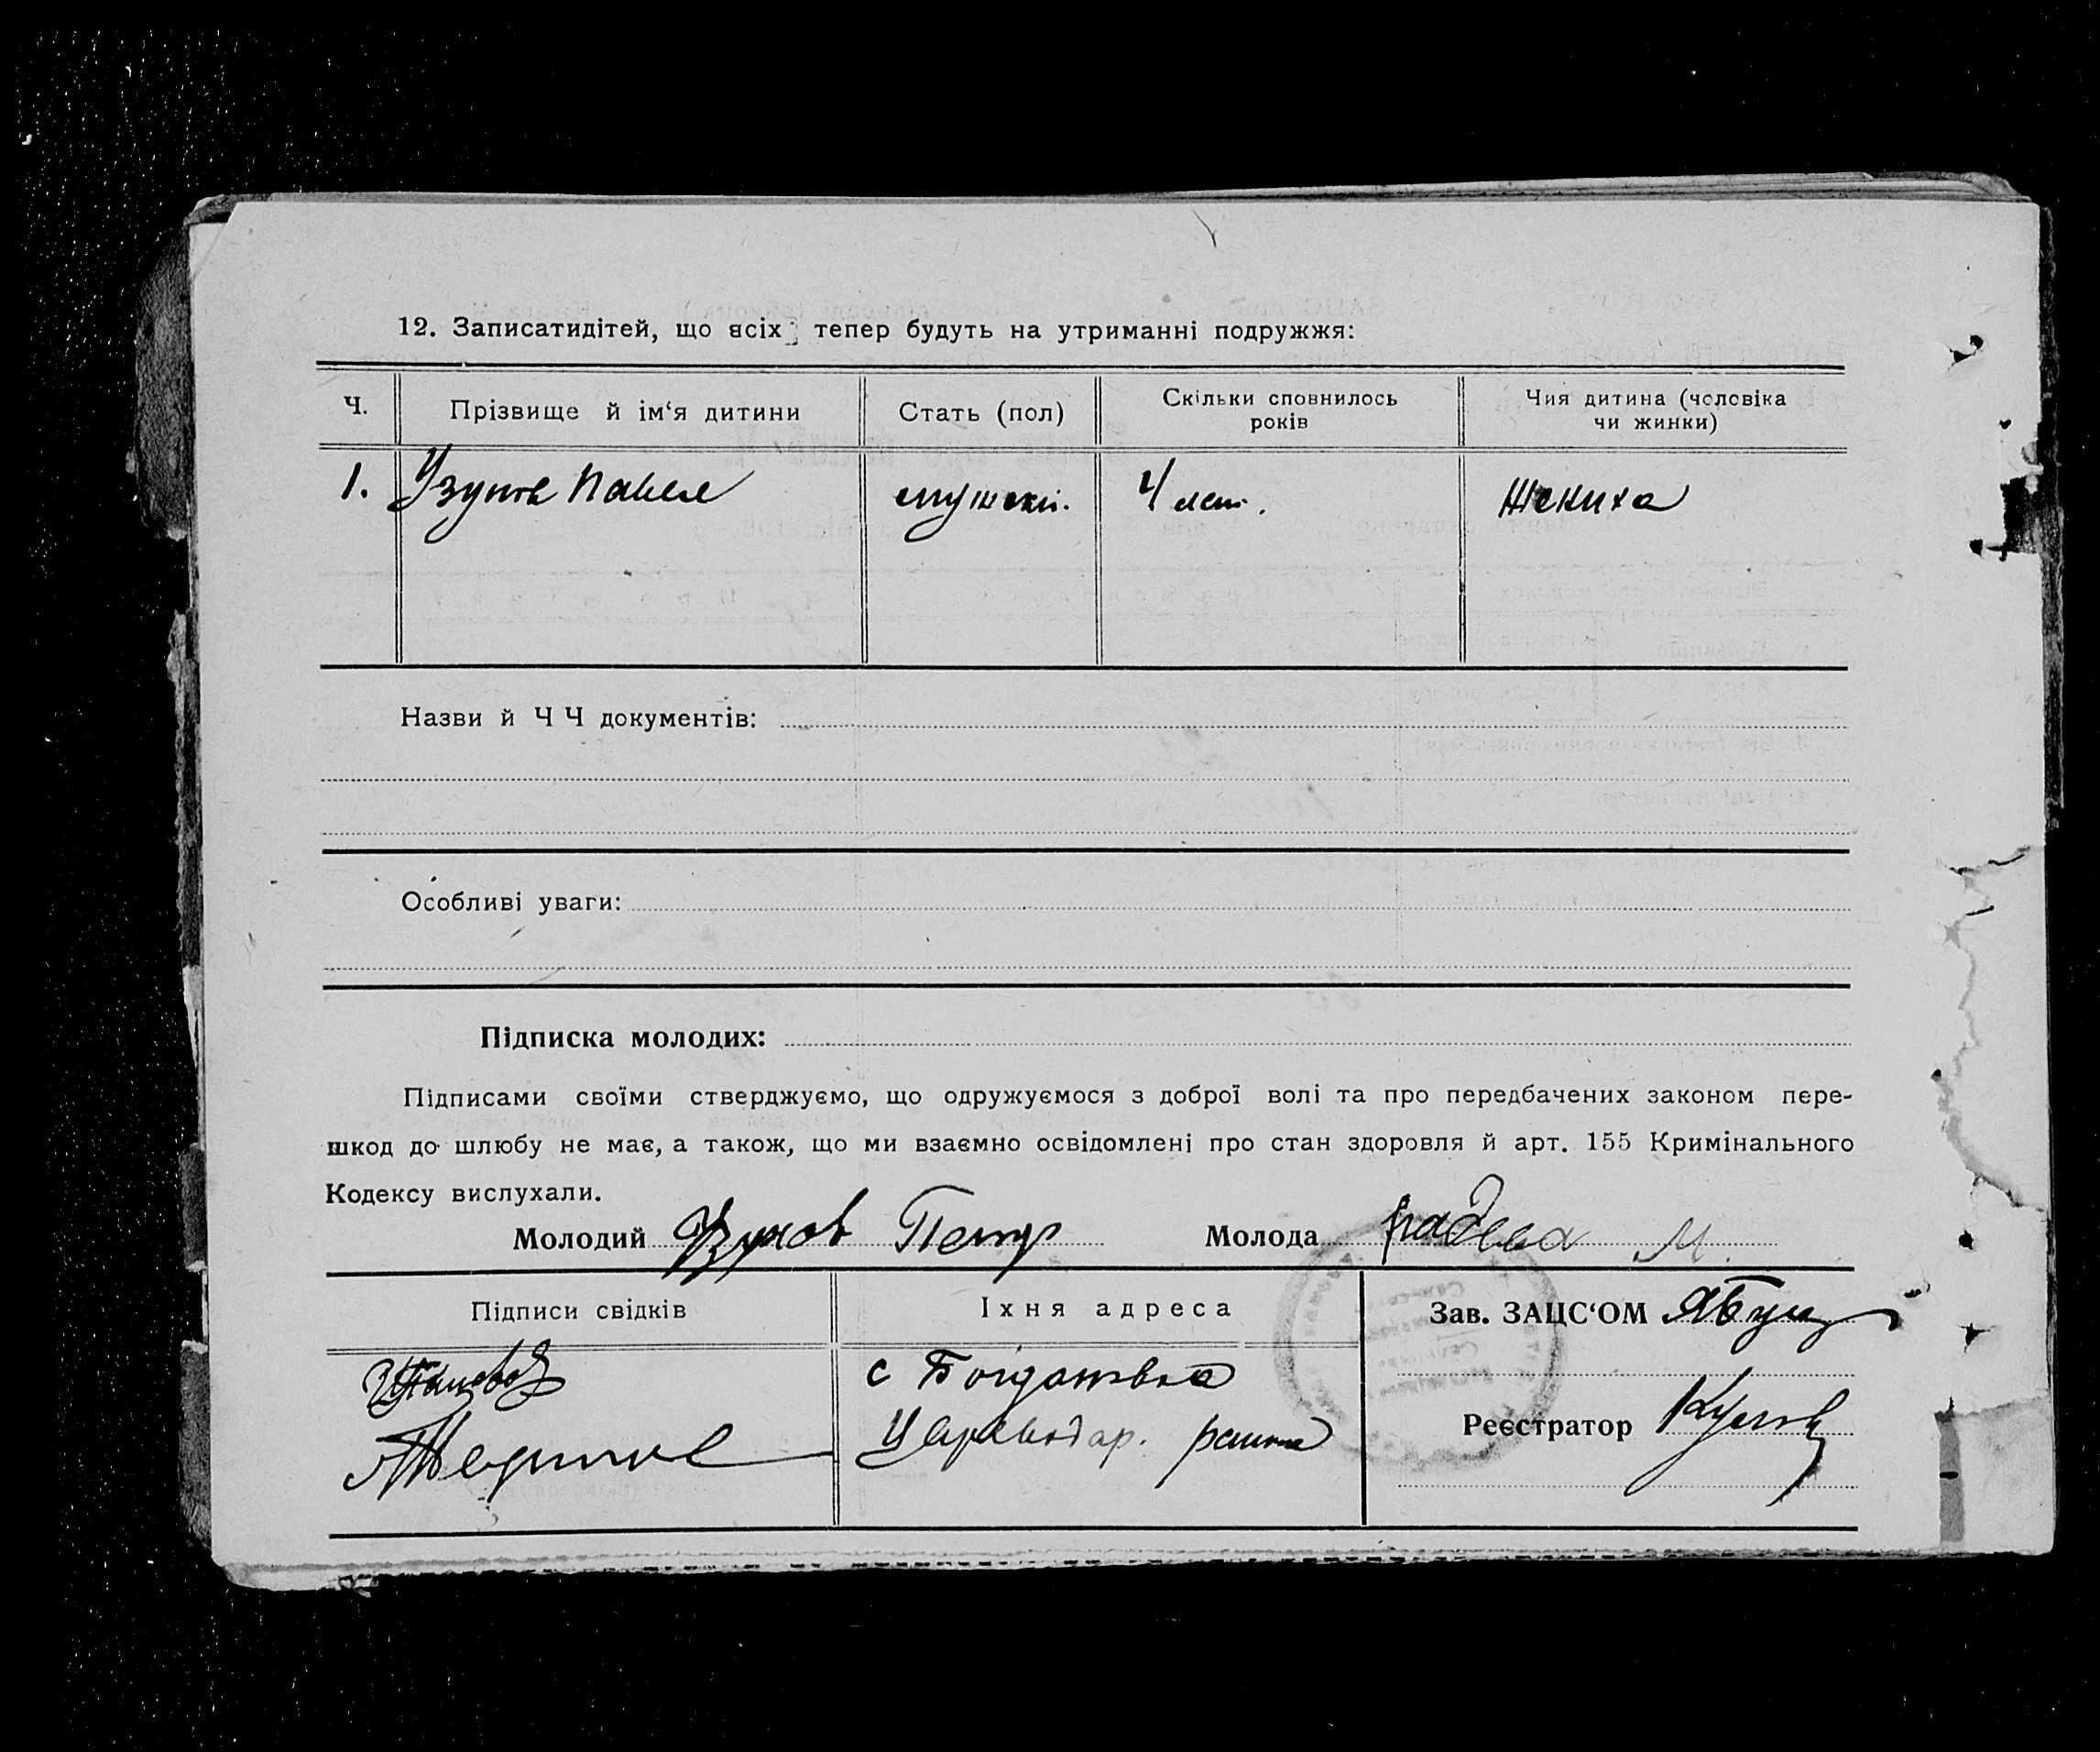 12. Записатидітей, що всіх тепер будуть на утриманні подружжя:
Ч. Прізвище й ім‘я дитини Стать (пол) Скільки сповнилось років Чия дитина (чоловіка чи жинки)
1. Узунов Павел мужски. 4 лет. Жениха
Назви й Ч Ч документів:
Особливі уваги:
Підписка молодих:
Підписами своїми стверджуємо, що одружуємося з доброї волі та про передбачених законом пере-
шкод до шлюбу не має, а також, що ми взаємно освідомлені про стан здоровля й арт. 155 Кримінального
Кодексу вислухали.
Молодий Узунов Петр Молода Радева М.
Підписи свідків Їхня адреса Зав. ЗАЦС‘ОМ
с Богдановка
района
Реєстратор